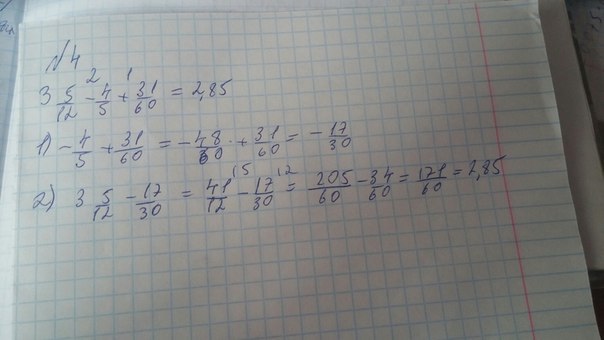 N4
2 1
3 5/12 - 4/5 + 31/60 = 2,85
1) - 4/5 + 31/60 = - 48/60 + 31/60 = - 17/30
2) 3 5/12 - 17/30 = 41/12 (5 - 17/30 (2 = 205/60 - 34/60 = 171/60 = 2,85